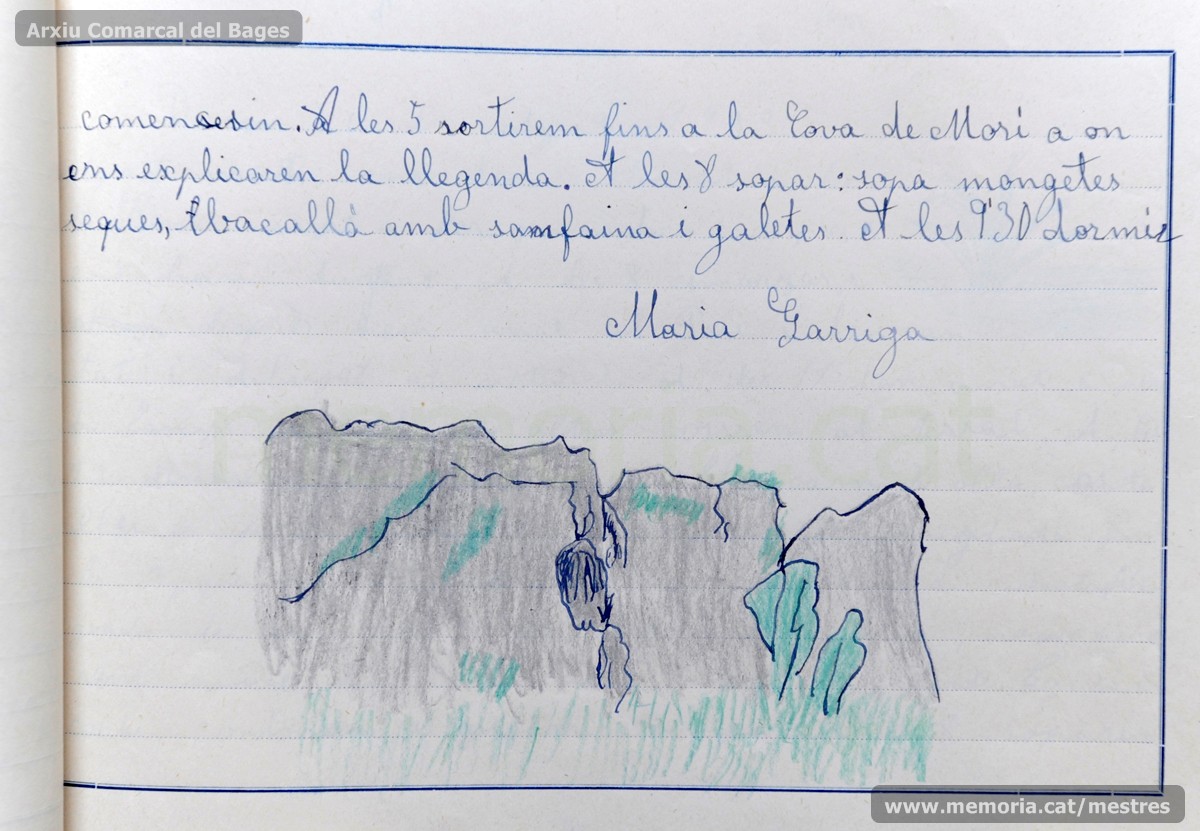 Arxiu Comarcal del Bages
comencesin. A les 5 sortirem fins a la Cova de Mori a on
ens explicaren la llegenda. A les 8 sopar: sopa mongetes
seques, bacallà amb samfaina i galetes. A les 9'30 dormir
Maria Garriga
memoria.cat
www.memoria.cat/mestres